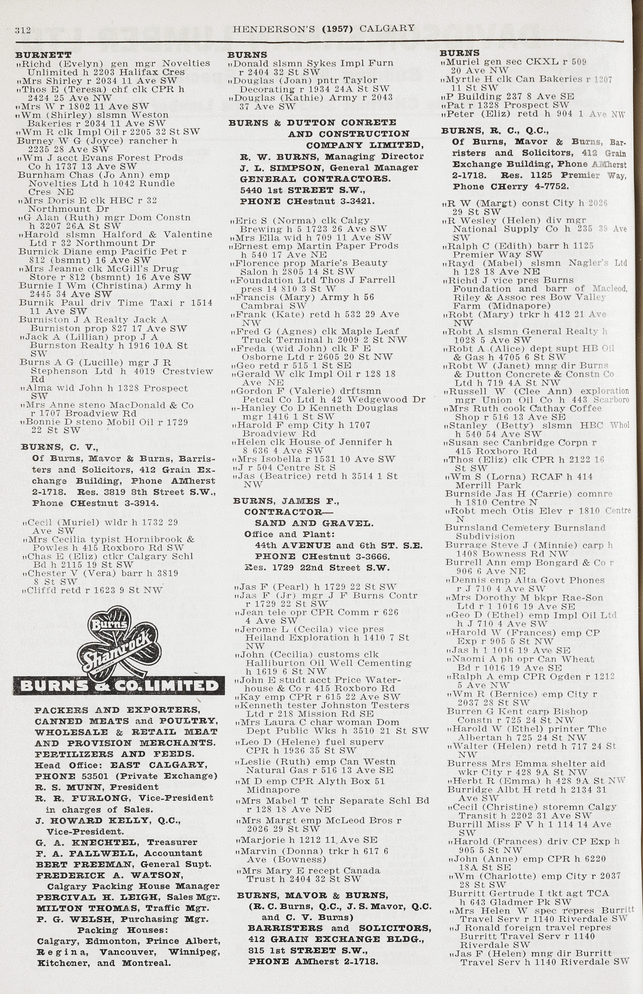 312
HENDERSON'S (1957) CALGARY
BURNETT
„Richd (Evelyn) gen mgr Novelties
Unlimited h 2203 Halifax Cres
„Mrs Shirley r 2034 11 Ave SW
„Thos E (Teresa) chf clk CPR h
2424 25 Ave NW
„Mrs W r 1802 11 Ave SW
„Wm (Shirley) slsmn Weston
Bakeries r 2034 11 Ave SW
„Wm R clk Impl Oil r 2205 32 St SW
Burney W G (Joyce) rancher h
2235 28 Ave SW
„Wm J acct Evans Forest Prods
Co h 1737 13 Ave SW
Burnham Chas (Jo Ann) emp
Novelties Ltd h 1042 Rundle
Cres NE
„Mrs Doris E clk HBC r 32
Northmount Dr
„G Alan (Ruth) mgr Dom Constn
h 3207 26A St SW
„Harold slsmn Halford & Valentine
Ltd r 32 Northmount Dr
Burnick Diane emp Pacific Pet r
812 (bsmnt) 16 Ave SW
„Mrs Jeanne clk McGill's Drug
Store r 812 (bsmnt) 16 Ave SW
Burnie I Wm (Christina) Army h
2445 34 Ave SW
Burnik Paul driv Time Taxi r 1514
11 Ave SW
Burniston J A Realty Jack A
Burniston prop 827 17 Ave SW
„Jack A (Lillian) prop J A
Burnston Realty h 1916 10A St
SW
Burns A G (Lucille) mgr J R
Stephenson Ltd h 4019 Crestview
Rd
„Alma wid John h 1328 Prospect
SW
„Mrs Anne steno MacDonald & Co
r 1707 Broadview Rd
„Bonnie D steno Mobil Oil r 1729
22 St SW
BURNS, C. V.,
Of Burns, Mavor & Burns, Barris-
ters and Solicitors, 412 Grain Ex-
change Building, Phone AMherst
2-1718. Res. 3819 8th Street S.W.,
Phone CHestnut 3-3914.
„Cecil (Muriel) wldr h 1732 29
Ave SW
„Mrs Cecilia typist Hornibrook &
Powles h 415 Roxboro Rd SW
„Chas E (Eliz) ctkr Calgary Schl
Bd h 2115 19 St SW
„Chester V (Vera) barr h 3819
8 St SW
„Cliffd retd r 1623 9 St NW
Burns
Shamrock
BURNS & CO. LIMITED
PACKERS AND EXPORTERS,
CANNED MEATS and POULTRY,
WHOLESALE & RETAIL MEAT
AND PROVISION MERCHANTS.
FERTILIZERS AND FEEDS.
Head Office: EAST CALGARY,
PHONE 53501 (Private Exchange)
R. S. MUNN, President
R. R. FURLONG, Vice-President
in charges of Sales.
J. HOWARD KELLY, Q.C.,
Vice-President.
G. A. KNECHTEL, Treasurer
F. A. FALLWELL, Accountant
BERT FREEMAN, General Supt.
FREDERICK A. WATSON,
Calgary Packing House Manager
PERCIVAL H. LEIGH, Sales Mgr.
MILTON THOMAS, Traffic Mgr.
P. G. WELSH, Purchasing Mgr.
Packing Houses:
Calgary, Edmonton, Prince Albert,
Regina, Vancouver, Winnipeg,
Kitchener, and Montreal.
BURNS
„Donald slsmn Sykes Impl Furn
r 2404 32 St SW
„Douglas (Joan) pntr Taylor
Decorating r 1934 24A St SW
„Douglas (Kathie) Army r 2043
37 Ave SW
BURNS & DUTTON CONRETE
AND CONSTRUCTION
COMPANY LIMITED,
R. W. BURNS, Managing Director
J. L. SIMPSON, General Manager
GENERAL CONTRACTORS.
5440 1st STREET S.W.,
PHONE CHestnut 3-3421.
„Eric S (Norma) clk Calgy
Brewing h 5 1723 26 Ave SW
„Mrs Ella wid h 709 11 Ave SW
„Ernest emp Martin Paper Prods
h 540 17 Ave NE
„Florence prop Marie's Beauty
Salon h 2805 14 St SW
„Foundation Ltd Thos J Farrell
pres 14 810 3 St SW
„Francis (Mary) Army h 56
Cambrai SW
„Frank (Kate) retd h 532 29 Ave
NW
„Fred G (Agnes) clk Maple Leaf
Truck Terminal h 2009 2 St NW
„Freda (wid John) clk F E
Osborne Ltd r 2605 20 St NW
„Geo retd r 515 1 St SE
„Gerald W clk Impl Oil r 128 18
Ave NE
„Gordon F (Valerie) drftsmn
Petcal Co Ltd h 42 Wedgewood Dr
„-Hanley Co D Kenneth Douglas
mgr 1416 1 St SW
„Harold F emp City h 1707
Broadview Rd
„Helen clk House of Jennifer h
8 636 4 Ave SW
„Mrs Isobella r 1531 10 Ave SW
„J r 504 Centre St S
„Jas (Beatrice) retd h 3514 1 St
NW
BURNS, JAMES F.,
CONTRACTOR—
SAND AND GRAVEL.
Office and Plant:
44th AVENUE and 6th ST. S.E.
PHONE CHestnut 3-3666.
Res. 1729 22nd Street S.W.
„Jas F (Pearl) h 1729 22 St SW
„Jas F (Jr) mgr J F Burns Contr
r 1729 22 St SW
„Jean tele opr CPR Comm r 626
4 Ave SW
„Jerome L (Cecila) vice pres
Heiland Exploration h 1410 7 St
NW
„John (Cecilia) customs clk
Halliburton Oil Well Cementing
h 1619 6 St NW
„John E studt acct Price Water-
house & Co r 415 Roxboro Rd
„Kay emp CPR r 615 22 Ave SW
„Kenneth tester Johnston Testers
Ltd r 218 Mission Rd SE
„Mrs Laura C char woman Dom
Dept Public Wks h 3510 21 St SW
„Leo D (Helene) fuel superv
CPR h 1936 35 St SW
„Leslie (Ruth) emp Can Westn
Natural Gas r 516 13 Ave SE
„M D emp CPR Alyth Box 51
Midnapore
„Mrs Mabel T tchr Separate Schl Bd
r 128 18 Ave NE
„Mrs Margt emp McLeod Bros r
2026 29 St SW
„Marjorie h 1212 11 Ave SE
„Marvin (Donna) trkr h 617 6
Ave (Bowness)
„Mrs Mary E recept Canada
Trust h 2404 32 St SW
BURNS, MAVOR & BURNS,
(R. C. Burns, Q.C., J. S. Mavor, Q.C.
and C. V. Burns)
BARRISTERS and SOLICITORS,
412 GRAIN EXCHANGE BLDG.,
315 1st STREET S.W.,
PHONE AMherst 2-1718.
BURNS
„Muriel gen sec CKXL r 509
20 Ave NW
„Myrtle H clk Can Bakeries r 1207
11 St SW
„P Building 237 8 Ave SE
„Pat r 1328 Prospect SW
„Peter (Eliz) retd h 904 1 Ave NW
BURNS, R. C., Q.C.,
Of Burns, Mavor & Burns, Bar-
risters and Solicitors, 412 Grain
Exchange Building, Phone AMherst
2-1718. Res. 1125 Premier Way,
Phone CHerry 4-7752.
„R W (Margt) const City h 2026
29 St SW
„R Wesley (Helen) div mgr
National Supply Co h 235 39 Ave
SW
„Ralph C (Edith) barr h 1125
Premier Way SW
„Rayd (Mabel) slsmn Nagler's Ltd
h 128 18 Ave NE
„Richd J vice pres Burns
Foundation and barr of Macleod,
Riley & Assoc res Bow Valley
Farm (Midnapore)
„Robt (Mary) trkr h 412 21 Ave
NW
„Robt A slsmn General Realty h
1028 5 Ave SW
„Robt A (Alice) dept supt HB Oil
& Gas h 4705 6 St SW
„Robt W (Janet) mng dir Burns
& Dutton Concrete & Constn Co
Ltd h 719 4A St NW
„Russell W (Clee Ann) exploration
mgr Union Oil Co h 443 Scarboro
„Mrs Ruth cook Cathay Coffee
Shop r 516 13 Ave SE
„Stanley (Betty) slsmn HBC Whol
h 540 54 Ave SW
„Susan sec Canbridge Corpn r
415 Roxboro Rd
„Thos (Eliz) clk CPR h 2122 16
St SW
„Wm S (Lorna) RCAF h 414
Merrill Park
Burnside Jas H (Carrie) comnre
h 1810 Centre N
„Robt mech Otis Elev r 1810 Centre
N
Burnsland Cemetery Burnsland
Subdivision
Burrage Steve J (Minnie) carp h
1408 Bowness Rd NW
Burrell Ann emp Bongard & Co r
906 6 Ave NE
„Dennis emp Alta Govt Phones
r J 710 4 Ave SW
„Mrs Dorothy M bkpr Rae-Son
Ltd r 1 1016 19 Ave SE
„Geo D (Ethel) emp Impl Oil Ltd
h J 710 4 Ave SW
„Harold W (Frances) emp CP
Exp r 905 5 St NW
„Jas h 1 1016 19 Ave SE
„Naomi A ph opr Can Wheat
Bd r 1016 19 Ave SE
„Ralph A emp CPR Ogden r 1212
5 Ave NW
„Wm R (Bernice) emp City r
2037 28 St SW
Burren G Kent carp Bishop
Constn r 725 24 St NW
„Harold W (Ethel) printer The
Albertan h 725 24 St NW
„Walter (Helen) retd h 717 24 St
NW
Burress Mrs Emma shelter aid
wkr City r 428 9A St NW
„Herbt R (Emma) h 428 9A St NW
Burridge Albt H retd h 2134 31
Ave SW
„Cecil (Christine) storemn Calgy
Transit h 2202 31 Ave SW
Burrill Miss F V h 1 114 14 Ave
SW
„Harold (Frances) driv CP Exp h
905 5 St NW
„John (Anne) emp CPR h 6220
18A St SE
„Wm (Charlotte) emp City r 2037
28 St SW
Burritt Gertrude I tkt agt TCA
h 643 Gladmer Pk SW
„Mrs Helen W spec repres Burritt
Travel Serv r 1140 Riverdale SW
„J Ronald foreign travel repres
Burritt Travel Serv r 1140
Riverdale SW
„Jas F (Helen) mng dir Burritt
Travel Serv h 1140 Riverdale SW